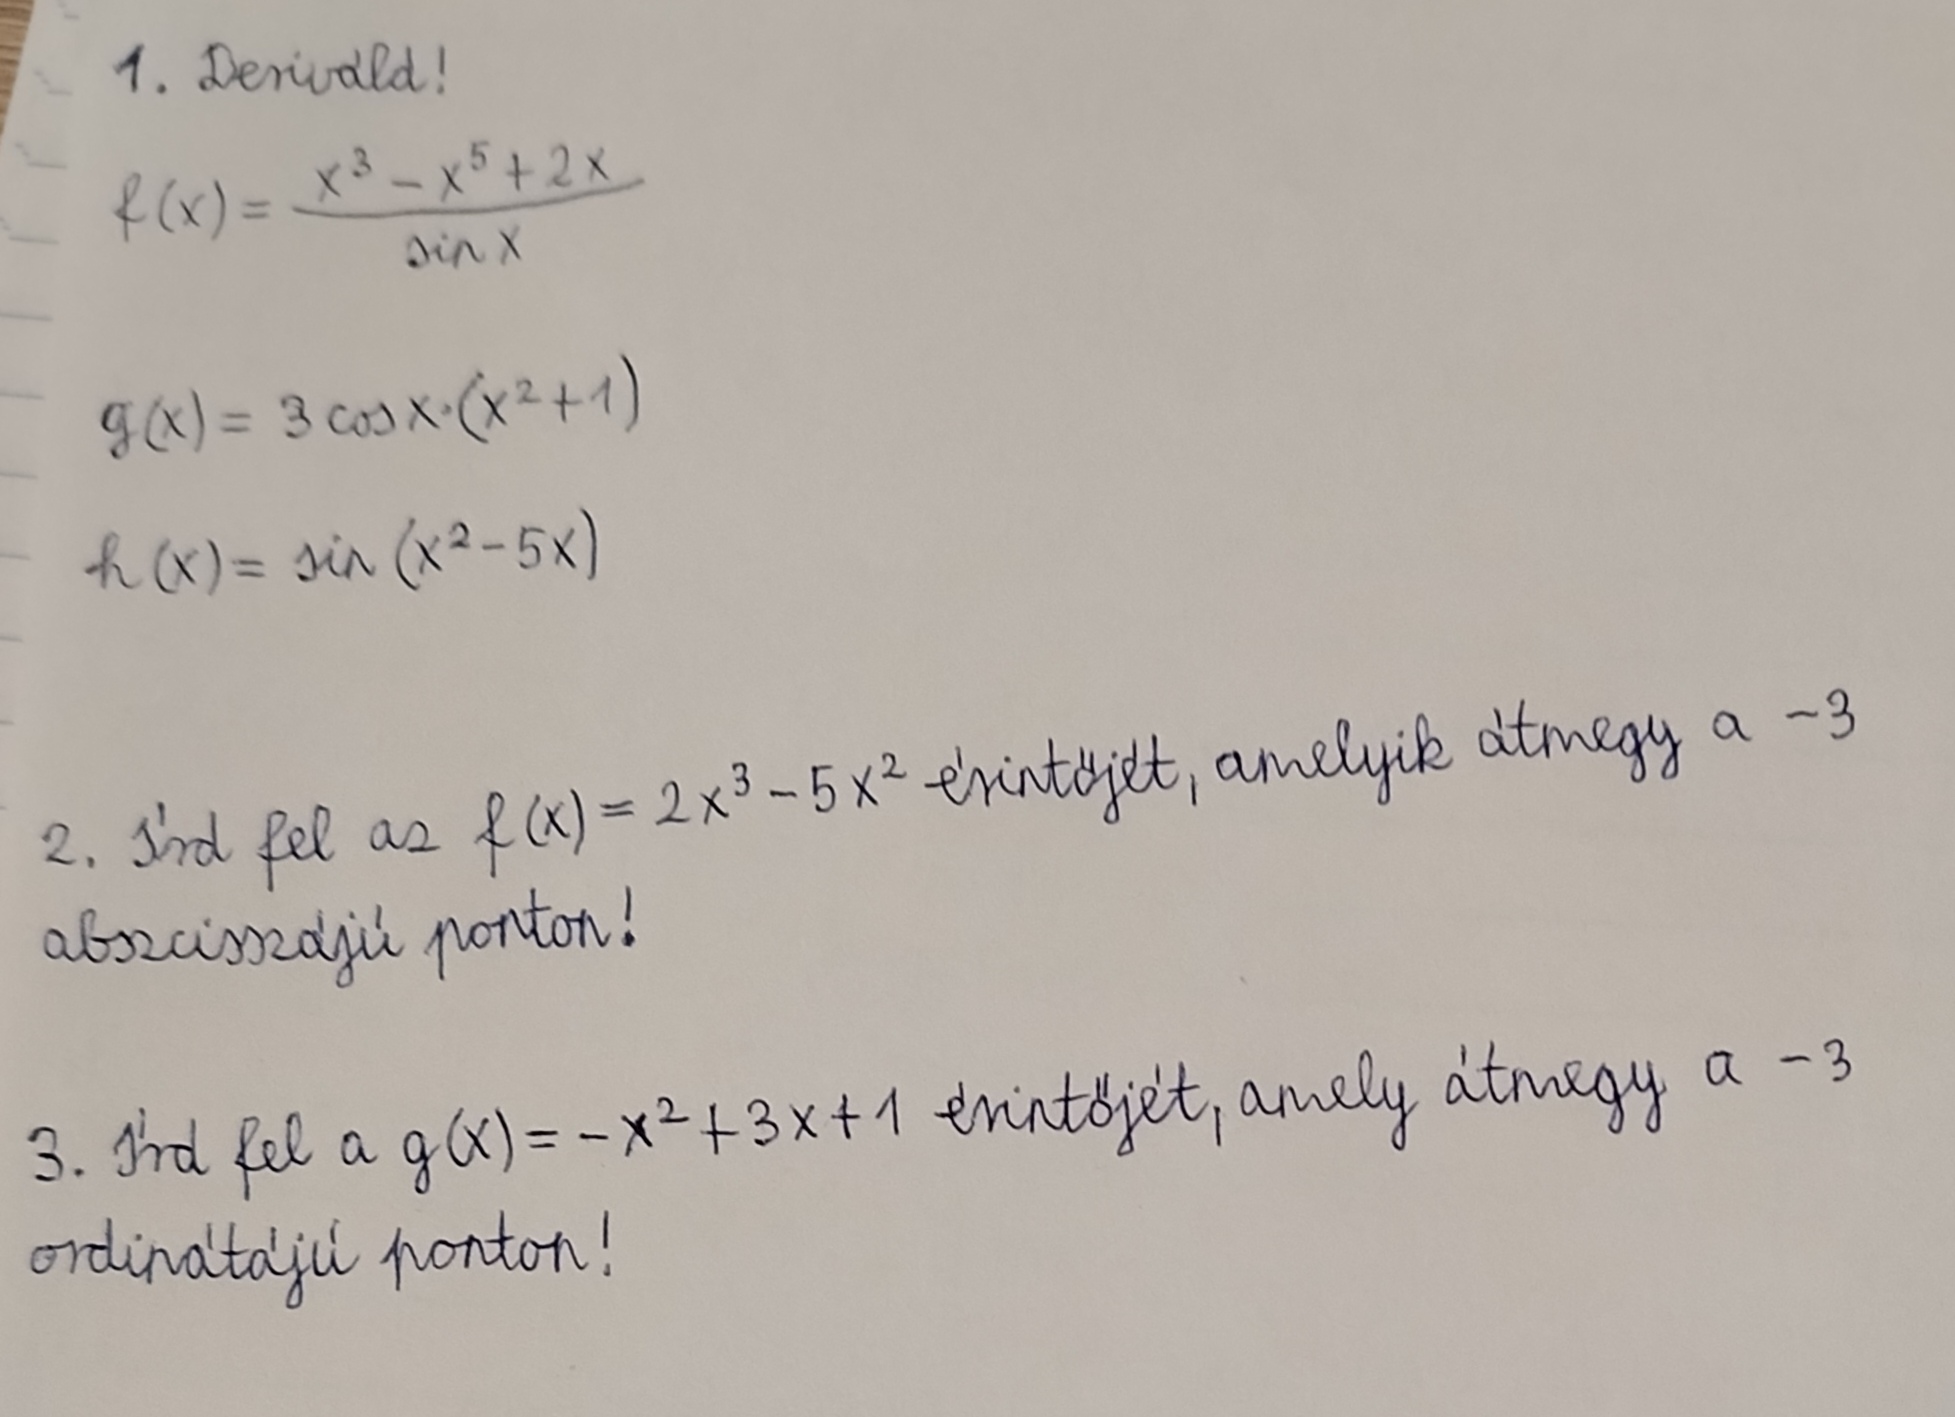 1. Deriváld!
f(x) = (x³ - x⁵ + 2x) / sin x
g(x) = 3 cos x · (x² + 1)
h(x) = sin (x² - 5x)
2. Írd fel az f(x) = 2x³ - 5x² érintőjét, amelyik átmegy a -3
abszcisszájú ponton!
3. Írd fel a g(x) = -x² + 3x + 1 érintőjét, amely átmegy a -3
ordinátájú ponton!